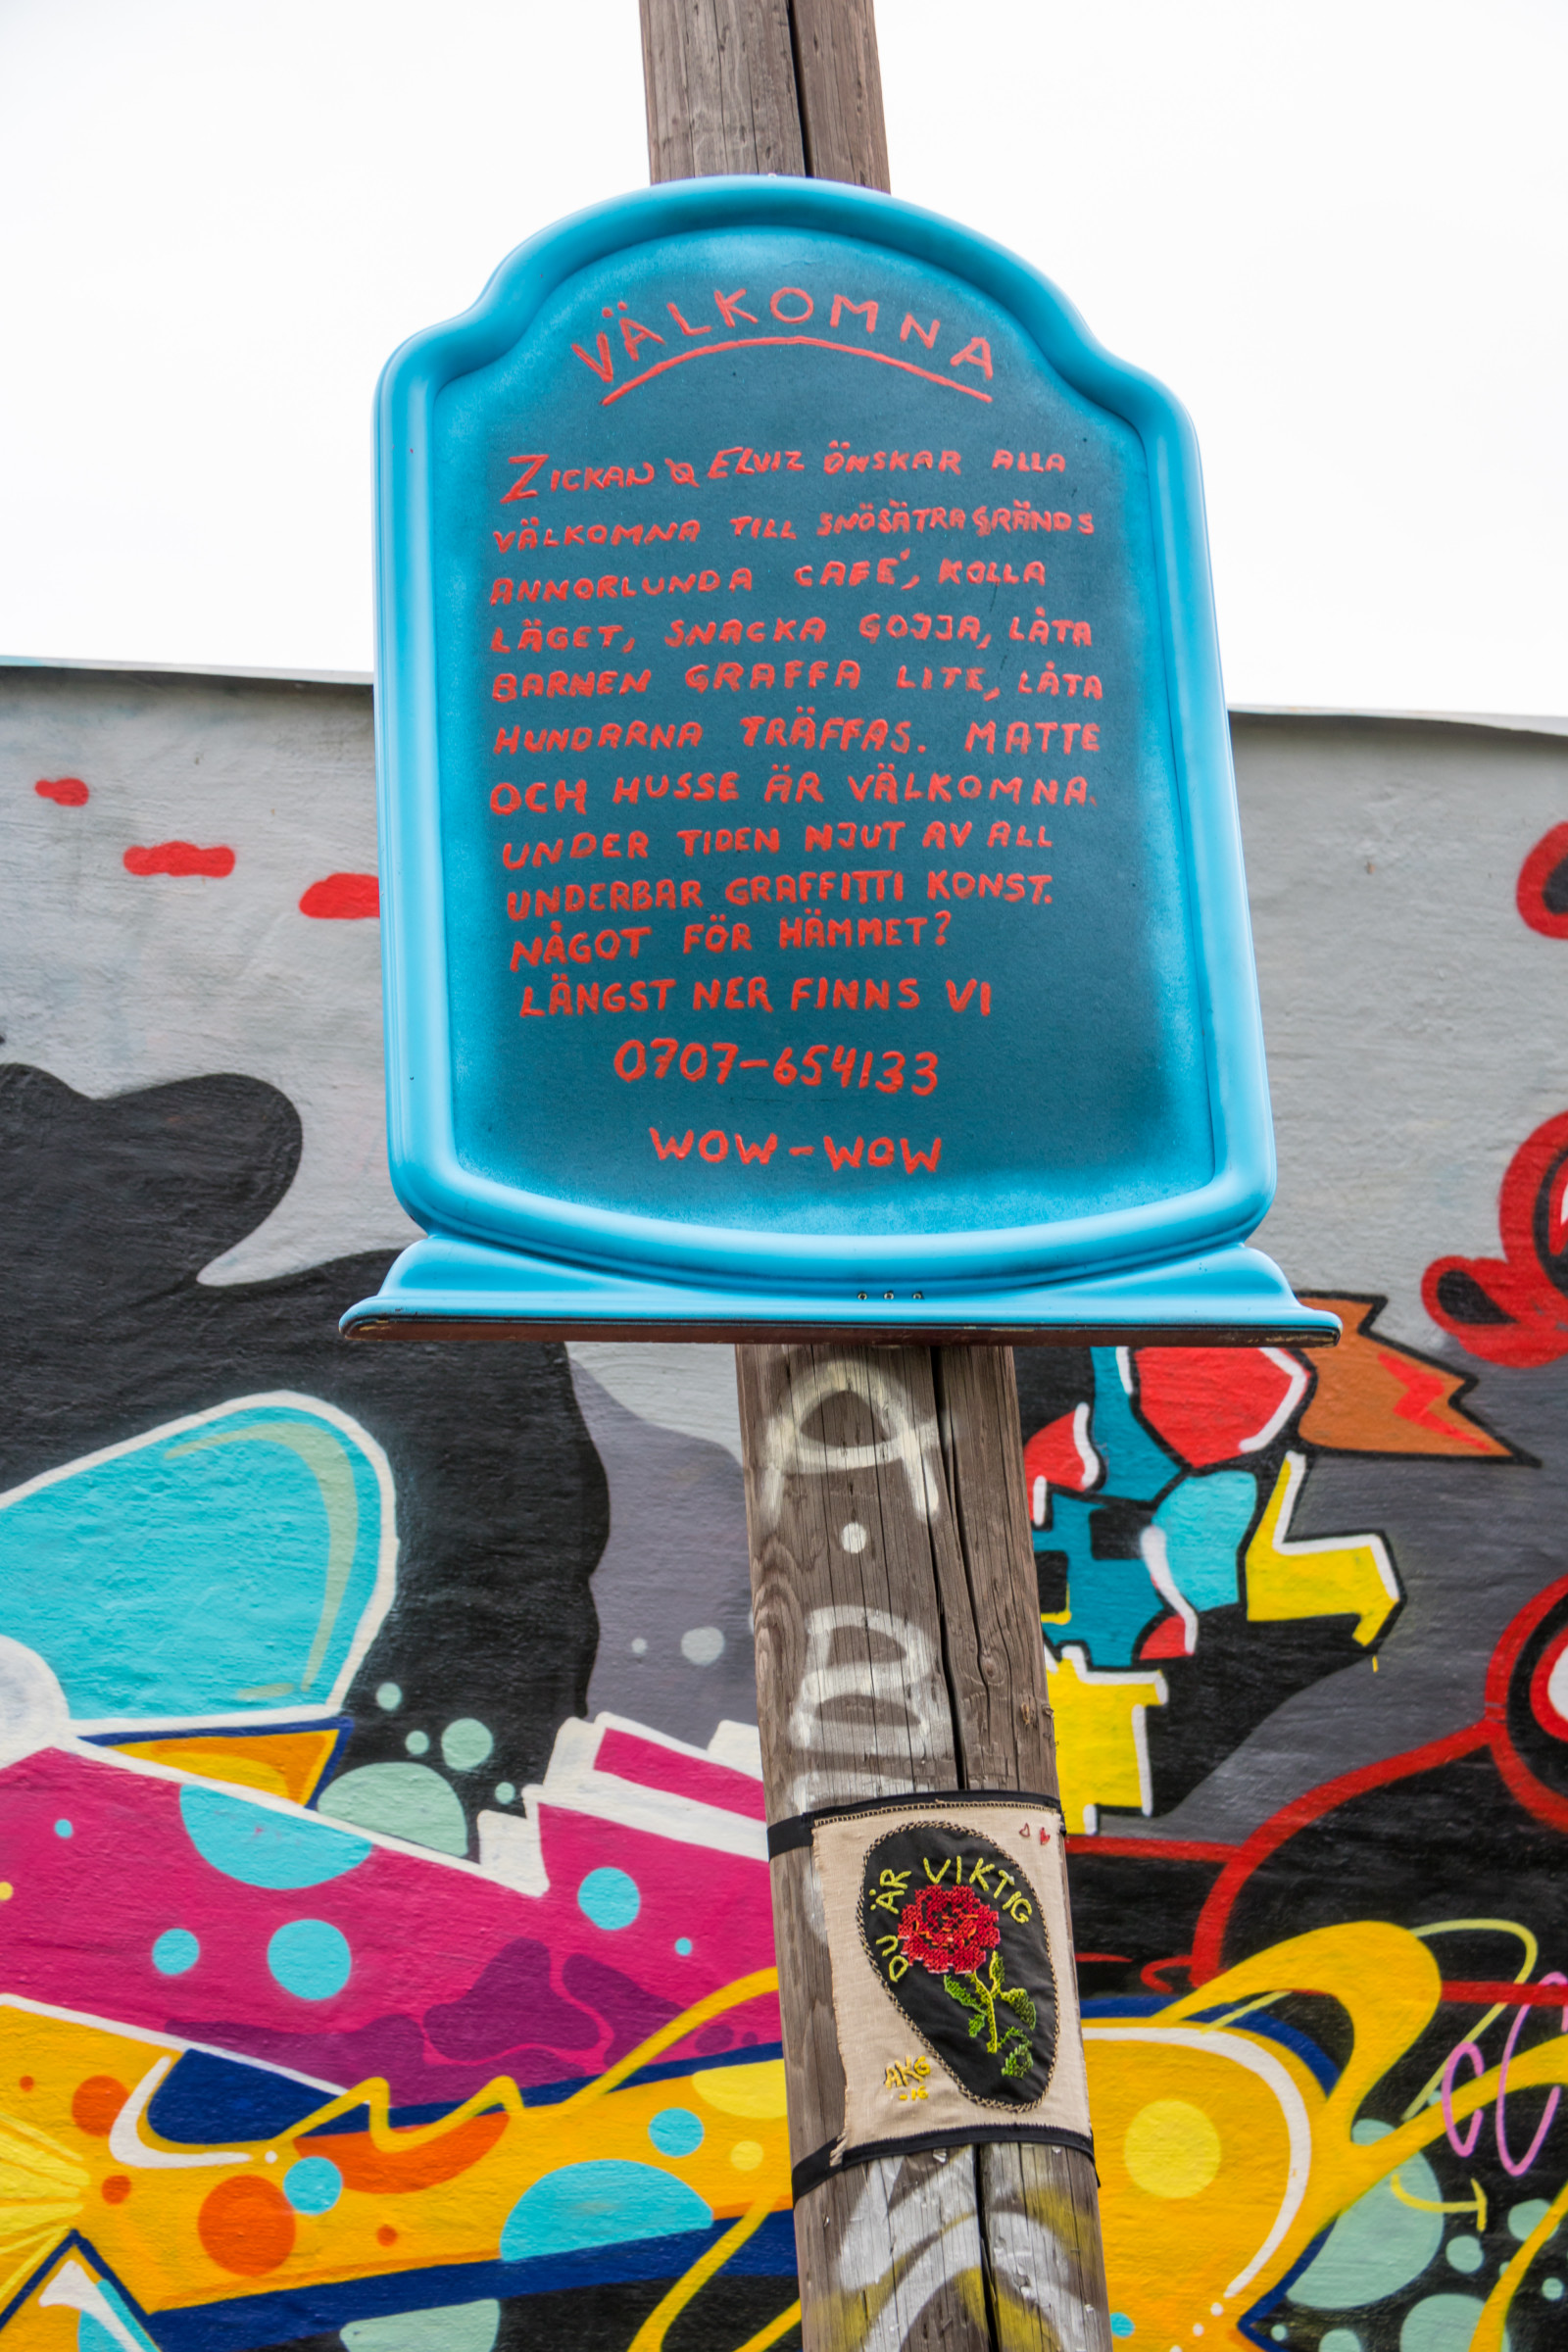 VÄLKOMNA
ZICKAN & ELVIZ ÖNSKAR ALLA
VÄLKOMNA TILL SNÖSÄTRAGRÄNDS
ANNORLUNDA CAFÉ, KOLLA
LÄGET, SNACKA GOJJA, LÅTA
BARNEN GRAFFA LITE, LÅTA
HUNDARNA TRÄFFAS. MATTE
OCH HUSSE ÄR VÄLKOMNA.
UNDER TIDEN NJUT AV ALL
UNDERBAR GRAFFITTI KONST.
NÅGOT FÖR HÄMMET?
LÄNGST NER FINNS VI
0707-654133
WOW-WOW
A.B
DU ÄR VIKTIG
AKG
-16